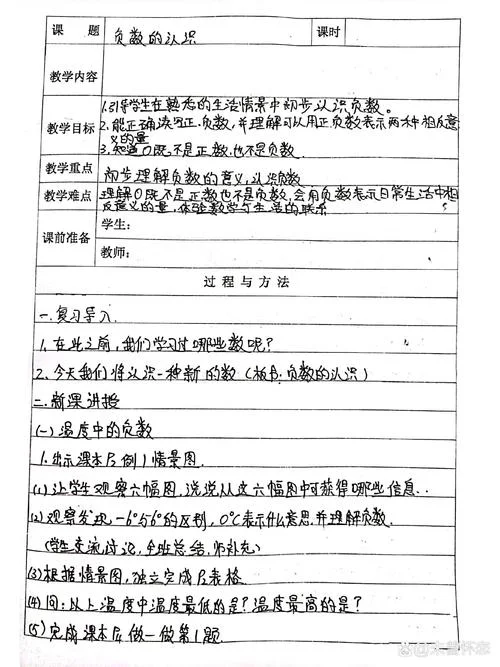 课题 负数的认识 课时
教学内容
教学目标
1.引导学生在熟悉的生活情景中初步认识负数。
2.能正确读写正、负数,并理解可以用正负数表示两种相反意
义的量
3.知道0既不是正数,也不是负数.
教学重点 初步理解负数的意义,认识负数
教学难点
理解0既不是正数也不是负数,会用负数表示日常生活中相
反意义的量,体验数学与生活的联系
课前准备
学生:
教师:
过程与方法
一.复习导入
1.在此之前,我们学习过哪些数呢?
2.今天我们将认识一种新的数(板书:负数的认识)
二.新课讲授
(一)温度中的负数
1.出示课本P.例1情景图.
(1)让学生观察六幅图,说说从这六幅图中可获得哪些信息..
(2)观察发现-6°与6°的区别,0℃表示什么意思.并理解负数.
(学生交流讨论,全班总结,师补充)
(3)根据情景图,独立完成P.表格
(4)问:以上温度中温度最低的是?温度最高的是?
(5)完成课本P.做一做第1题.